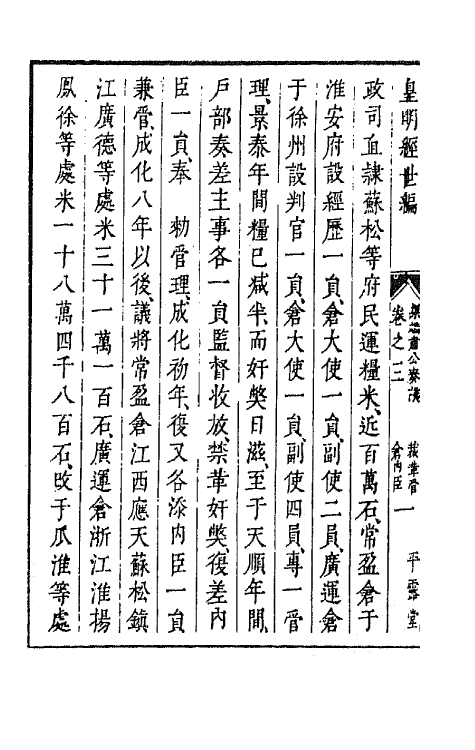 皇明經世編
梁端肅公奏議
卷之三
裁革管
倉內臣
一
平露堂
政司直隷蘇松等府民運糧米、近百萬石、常盈倉于
淮安府設經歷一員、倉大使一員、副使二員、廣運倉
于徐州設判官一員、倉大使一員、副使四員、專一管
理、景泰年間糧已减半、而奸獘日滋、至于天順年間、
戶部奏差主事各一員監督收放、禁革奸獘、復差內
臣一員、奉　勑管理、成化初年、復又各添內臣一員
兼管、成化八年以後、議將常盈倉江西應天蘇松鎮
江廣德等處米三十一萬一百石、廣運倉浙江淮揚
鳳徐等處米一十八萬四千八百石、改于瓜淮等處